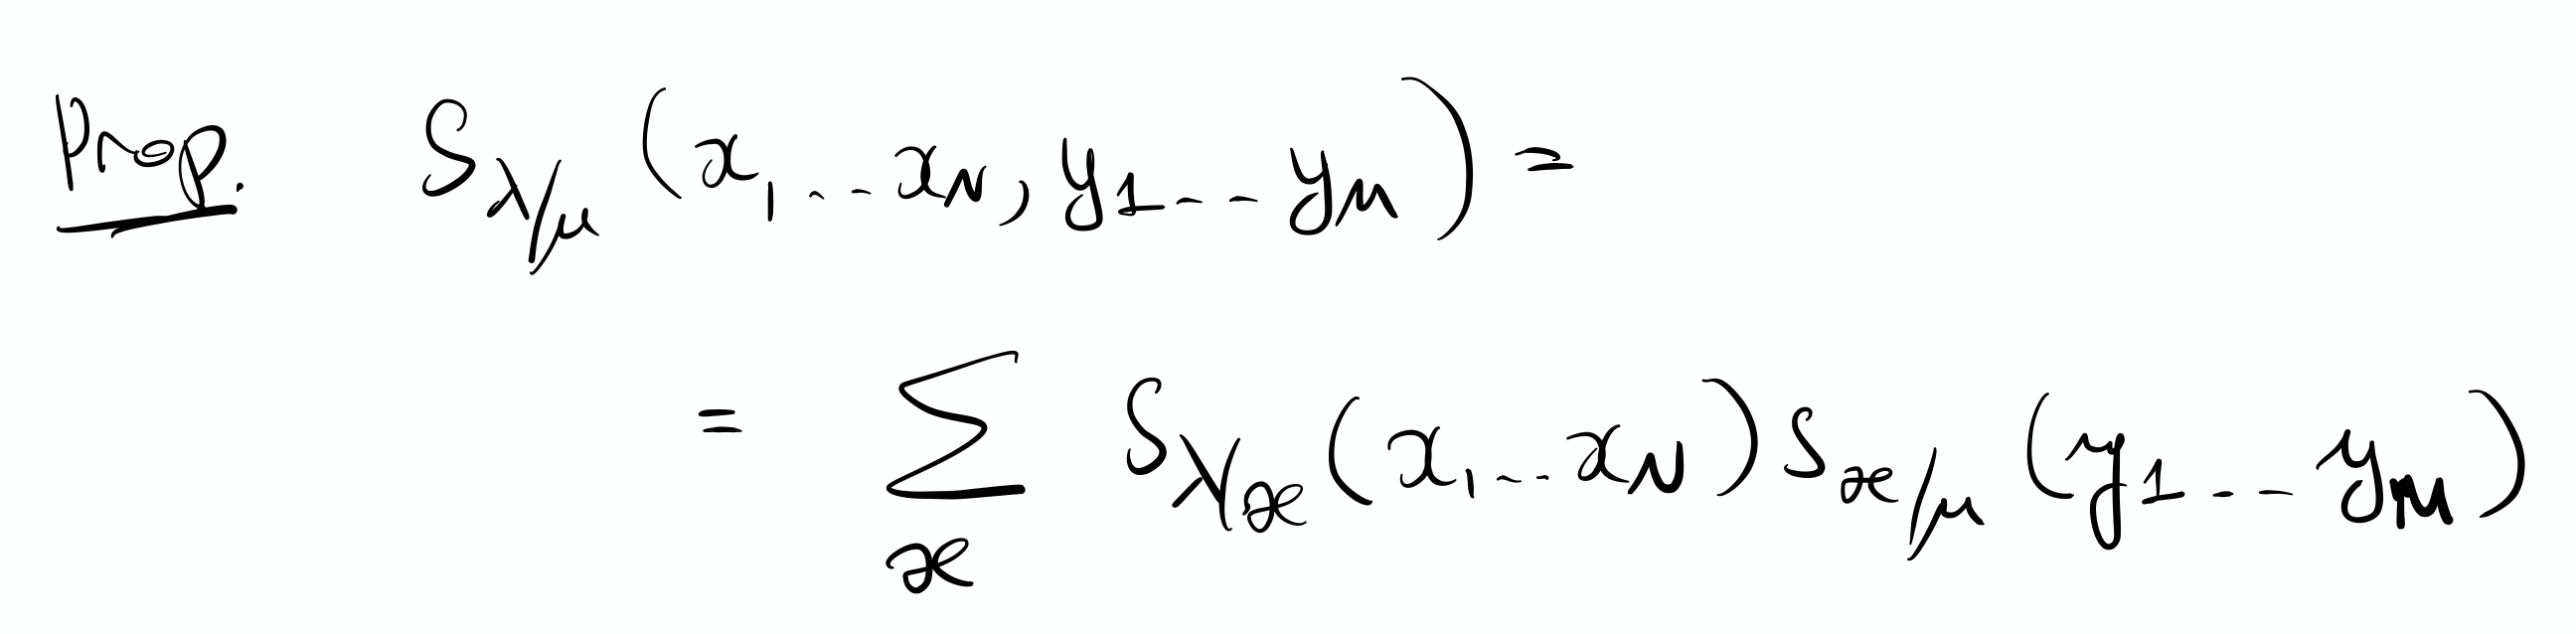 Prop. S_{λ/μ} (x_1 ... x_N, y_1 ... y_M) =
= ∑_{ϰ} S_{λ/ϰ} (x_1 ... x_N) S_{ϰ/μ} (y_1 ... y_M)